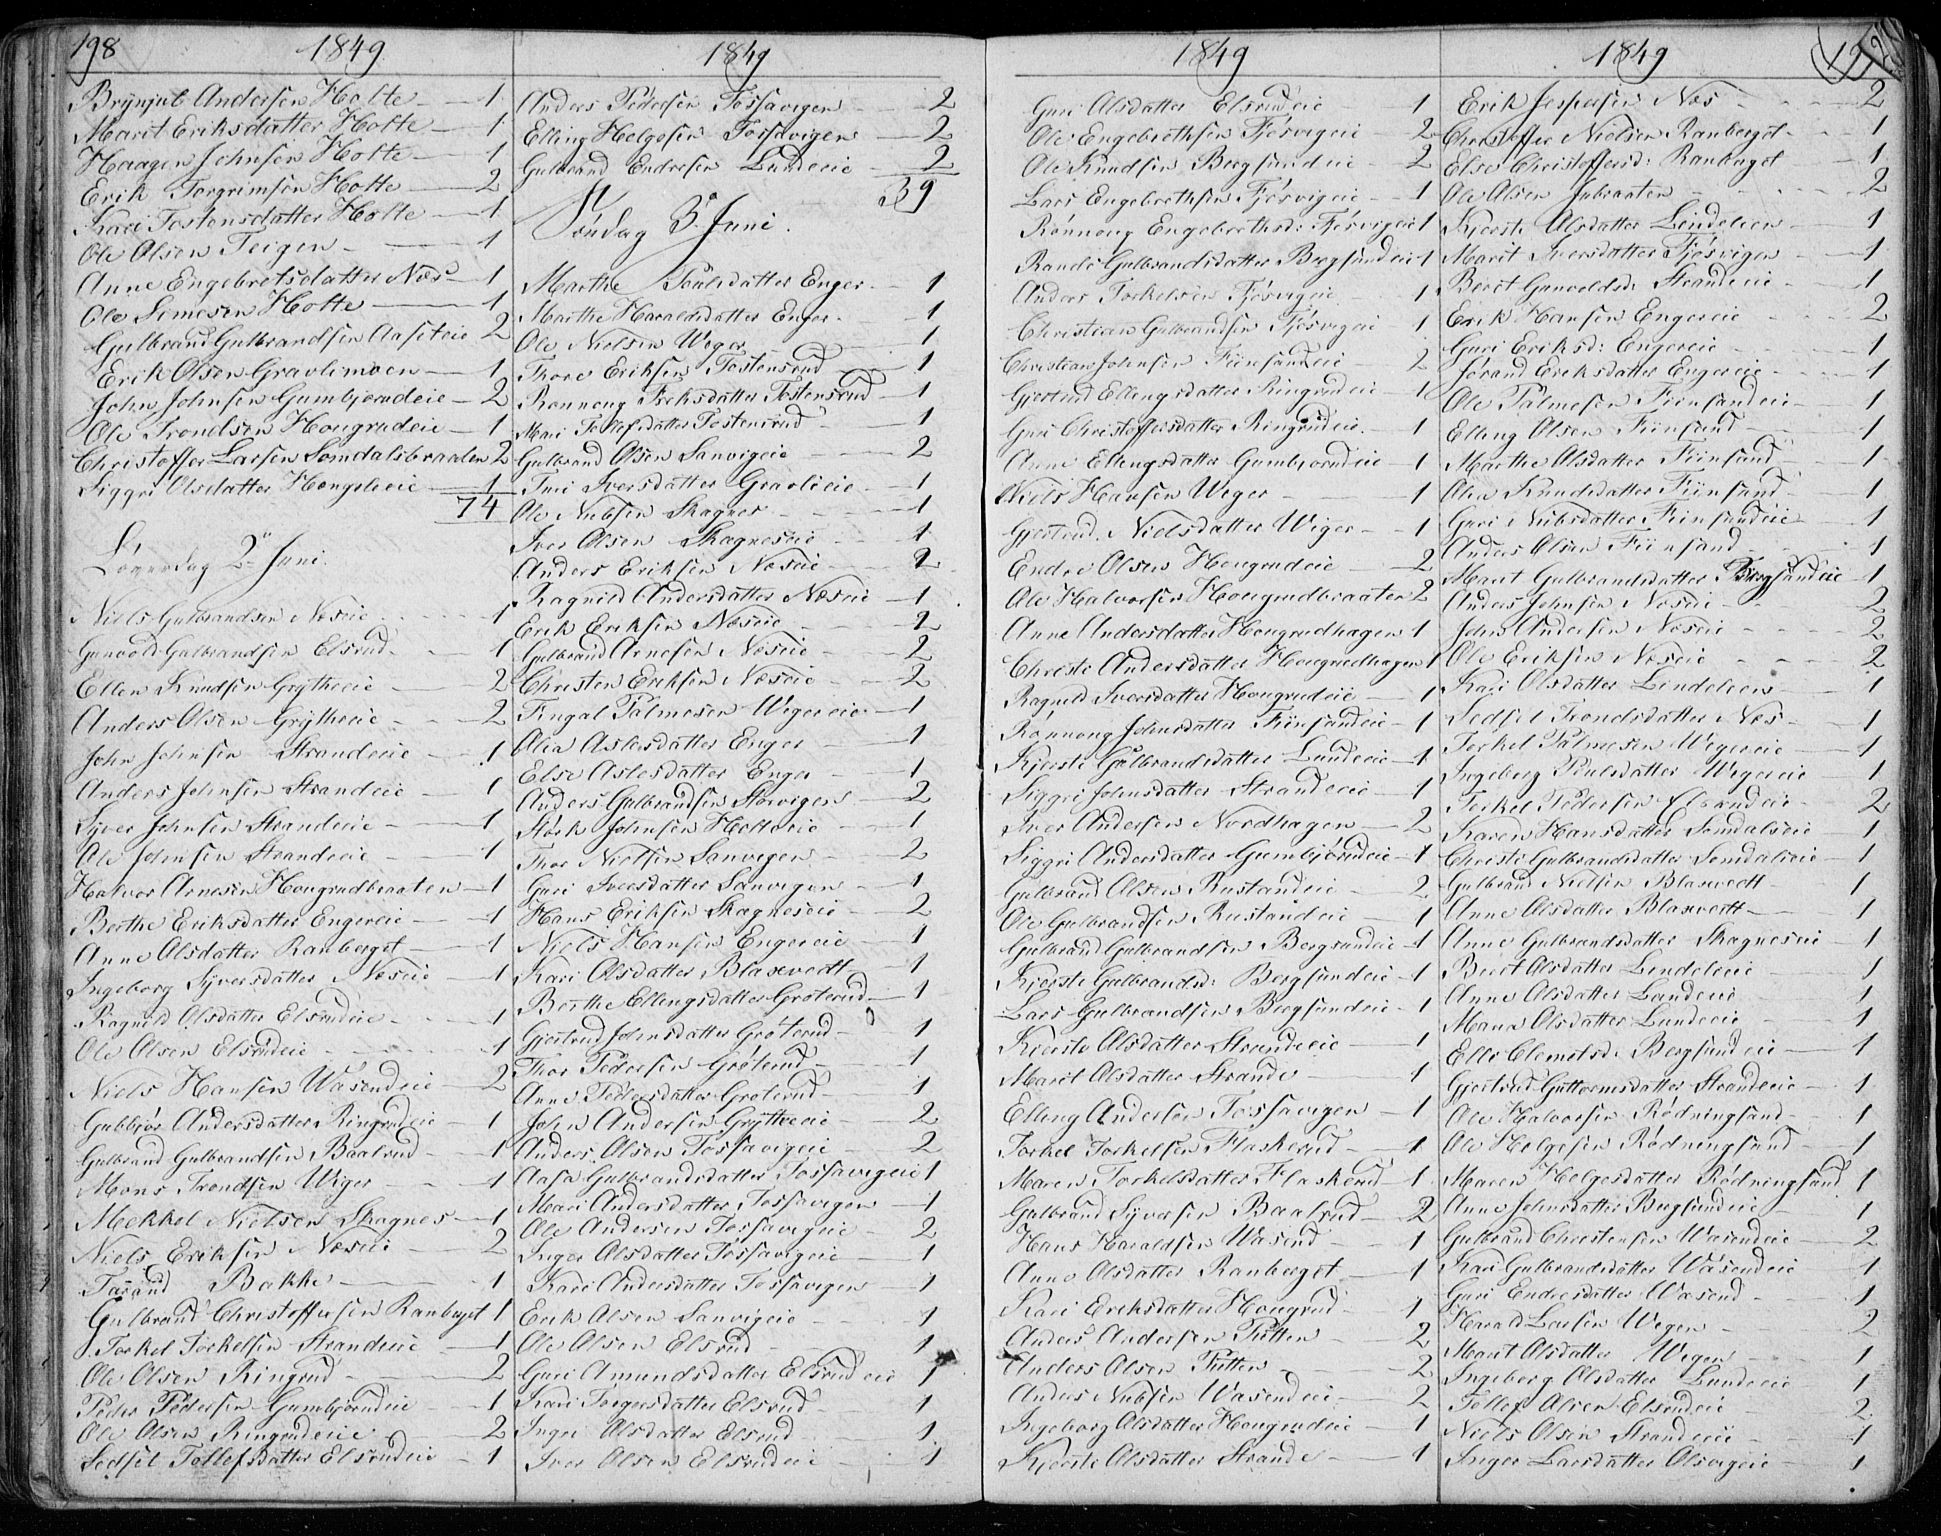 198 1849
Brynjul Andersen Holte 1
Marit Eriksdatter Holte 1
Haagen Johnsen Holte 1
Erik Torgrimsen Holte 2
Kari Tostensdatter Holte 1
Ole Olsen Teigen 1
Anne Engebretsdatter Næs 1
Ole Simesen Holte 1
Gulbrand Gulbrandsen 2
Erik Olsen Gravlimoen 1
John Johnsen Gumbjørndeie 2
Ole Trondsen Hougrudeie 1
Christoffer Larsen Somdalsbraaten 2
Siggri Olsdatter 1
74
Løverdag 2 Juni
Niels Gulbrandsen Næseie 1
Gunvold Gulbrandsen Elsrud 1
Ellen Knudsen Grytheeie 2
Anders Olsen Grytheeie 2
John Johnsen Strandeeie 1
Anders Johnsen Strandeie 1
Syver Johnsen Strandeeie 1
Ole Johnsen Strandeeie 1
Halvor Arnesen Hougrudbraaten 1
Berthe Eriksdatter Engereie 1
Anne Olsdatter Ranberget 1
Ingeborg Syversdatter Næseie 1
Ragnild Olsdatter Elsrudeie 1
Ole Olsen Elsrudeie 1
Niels Hansen Wasendeie 2
Gubbjør Andersdatter Ringrudeie 1
Gulbrand Gulbrandsen Baalrud 1
Mons Trondsen Wiger 1
Mekkel Nielsen Skagnes 1
Niels Eriksen Næseie 2
Tarand Bakke 1
Gulbrand Christoffersen Ranberget 1
Torkel Torkelsen Strandeeie 1
Ole Olsen Ringrud 2
Peder Pedersen Gumbjørndeie 1
Ole Olsen Ringrudeeie 2
Sedsel Tollefsdatter Elsrudeie 1
1849
Anders Pedersen Fossavigen 2
Elling Helgesen Fossavigen 2
Gulbrand Endresen Lundeeie 2
39
Søndag 3 Juni.
Marthe Poulsdatter Enger 1
Marthe Haraldsdatter Enger 1
Ole Nielsen Weger 1
Thore Eriksen Tostensrud 1
Rønnong Eriksdatter Tostensrud 1
Mari Tollefsdatter Tostensrud 1
Gulbrand Olsen Sanvigeie 2
Turi Iversdatter Gravlieie 1
Ole Nubsen Skagnes 1
Iver Olsen Skagneseie 1
Anders Eriksen Næseie 2
Ragnild Andersdatter Næseie 1
Erik Eriksen Næseie 2
Gulbrand Arnesen Næseie 2
Christen Eriksen Næseie 2
Fingal Palmesen Wegereie 1
Olia Aslesdatter Enger 1
Else Aslesdatter Enger 1
Anders Gulbrandsen Storvigen 2
Størk Johnsen Holteeie 1
Thor Nielsen Sanvegen 2
Guri Iversdatter Sanvigen 1
Hans Eriksen Skagneseie 2
Niels Hansen Engereie 1
Kari Olsdatter Blaxvedt 1
Berthe Ellingsdatter Grøterud 1
Gjertrud Johnsdatter Grøterud 1
Thor Pedersen Grøterud 1
Anne Pedersdatter Grøterud 1
John Andersen Grytheeie 2
Anders Olsen Fossavigeie 2
Aasa Gulbrandsdatter Fossavigeie 1
Mari Andersdatter Fossavigen 1
Ole Andersen Fossavigeie 2
Inger Olsdatter Fossavigeie 1
Kari Andersdatter Fossavigen 1
Erik Olsen Sanvigeie 1
Ole Olsen Elsrud 1
Guri Amundsdatter Elsrudeie 1
Kari Torgersdatter Elsrud 1
Ingri Olsdatter Elsrud 1
Iver Olsen Elsrudeie 1
1849
Guri Olsdatter Elsrudeie 1
Ole Engebrethsen Fjøsvigeie 2
Ole Knudsen Bergsundeie 2
Lars Engebrethsen Fjøsvigeie 1
Rønnoug Engebrethsd: Fjøsvigeie 1
Rande Gulbrandsdatter Bergsundeie 1
Anders Torkelsen Fjøsvigeie 1
Christian Gulbrandsen Fjøsvigeie 1
Christian Johnsen Fiinsandeie 2
Gjertrud Ellingsdatter Ringrudeie 1
Guri Christoffersdatter Ringrudeie 1
Anne Ellingsdatter Gumbjørndeie 1
Niels Hansen Weger 1
Gjertrud Nielsdatter Wiger 1
Endre Olsen Hougrudeie 2
Ole Halvorsen Hougrudbraaten 2
Anne Andersdatter Hougrudhagen 1
Christi Andersdatter Hougrudhagen 1
Ragnild Iversdatter Hougrudeie 1
Rønnoug Johnsdatter Fiinsandeie 1
Kjersti Gulbrandsdatter Lundeeie 1
Siggri Johnsdatter Strandeeie 1
Iver Andersen Nordhagen 2
Siggri Andersdatter Gumbjørndeie 1
Gulbrand Olsen Rustandeie 2
Ole Gulbrandsen Rustandeie 1
Gulbrand Gulbrandsen Bergsundeie 1
Kjersti Gulbrandsd: Bergsundeie 1
Lars Gulbrandsen Bergsundeie 1
Kjersti Olsdatter Strandeeie 1
Marit Olsdatter Strande 1
Elling Andersen Fossavigen 1
Torkel Torkelsen Flaskerud 1
Maren Torkelsdatter Flaskerud 1
Gulbrand Syversen Baalrud 2
Hans Haraldsen Wasend 1
Anne Olsdatter Ranberget 1
Kari Eriksdatter Hougrud 1
Anders Andersen Putten 2
Anders Olsen Putten 2
Anders Nubsen Wasendeie 2
Ingeborg Olsdatter Hougrudeie 1
Kjersti Olsdatter Strande 1
1849
Erik Jespersen Næs 2
Christoffer Nielsen Ranberget 1
Else Christoffersd: Ranberget 1
Ole Olsen Julbraaten 2
Kjersti Olsdatter Lindelien 1
Marit Iversdatter Fjøsvigen 1
Berit Gunvoldsd: Strandeeie 1
Erik Hansen Engereie 2
Guri Eriksd: Engereie 1
Jørand Eriksdatter Engereie 1
Ole Palmesen Fiinsandeie 1
Elling Olsen Fiinsand 1
Marthe Olsdatter Fiinsand 1
Olea Knudsdatter Fiinsand 1
Guri Nubsdatter Fiinsandeie 1
Anders Olsen Fiinsand 1
Marit Gulbrandsdatter Bergsundeie 1
Anders Johnsen Næseie 2
John Andersen Næseie 2
Ole Eriksen Næseie 2
Kari Olsdatter Lindelien 1
Sedsel Trondsdatter Næs 1
Torkel Palmesen Wegereie 1
Ingeborg Poulsdatter Wegereie 1
Torkel Pedersen Elsrudeie 2
Karen Hansdatter Somdalseie 1
Christi Gulbrandsdatter Somdalseie 1
Gulbrand Nielsen Blaxvedt 1
Anne Olsdatter Blaxvedt 1
Anne Gulbrandsdatter Skagneseie 1
Berit Olsdatter Lindelieie 1
Anne Olsdatter Lundeeie 1
Maria Olsdatter Lundeeie 1
Elli Clemetsd: Bergsundeie 1
Gjertrud Guttormsdatter Strandeeie 1
Ole Halvorsen Rødningsand 1
Ole Helgesen Rødningsand 1
Maren Helgesdatter Rødningsand 1
Anne Johnsdatter Bergsundeie 1
Gulbrand Christensen Wasendeie 2
Kari Gulbrandsdatter Wasendeie 1
Guri Endresdatter Wasend 1
Harald Larsen Wegen 2
Marit Olsdatter Wegen 1
Ingeborg Olsdatter Lundeeie 1
Tollef Olsen Elsrudeie 2
Niels Olsen Strandeeie 1
Inger Larsdatter Olsvigeie 1